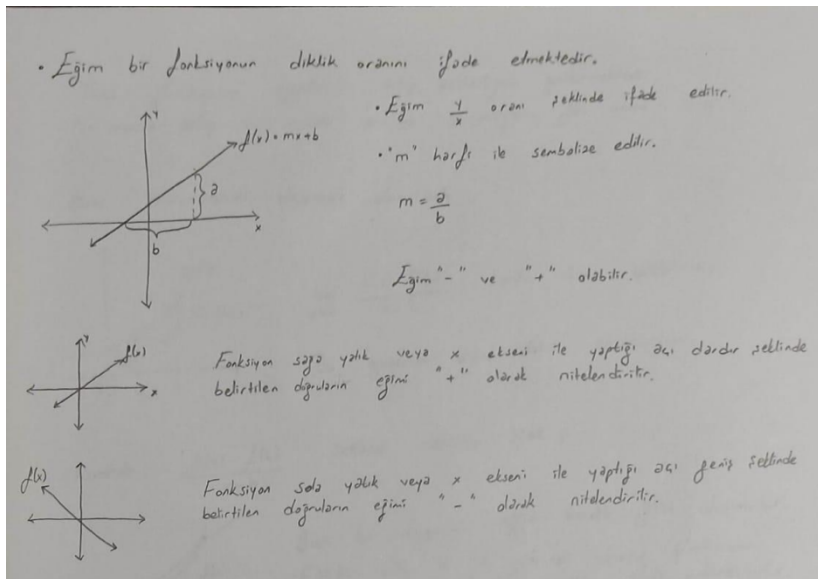 • Eğim bir fonksiyonun diklik oranını ifade etmektedir.
• Eğim y/x oranı şeklinde ifade edilir.
• "m" harfi ile sembolize edilir.
m = a/b
Eğim "-" ve "+" olabilir.
y
f(x) = mx+b
a
x
b
y
f(x)
x
Fonksiyon sağa yatık veya x ekseni ile yaptığı açı dardır şeklinde
belirtilen doğruların eğimi "+" olarak nitelendirilir.
f(x)
Fonksiyon sola yatık veya x ekseni ile yaptığı açı geniş şeklinde
belirtilen doğruların eğimi "-" olarak nitelendirilir.